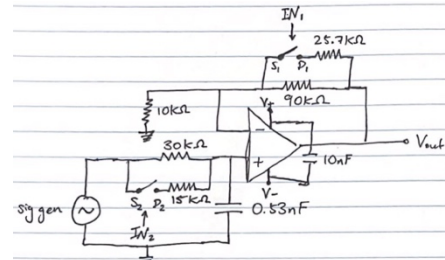 IN₁
25.7kΩ
S₁ D₁
90kΩ
10kΩ
V+
−
30kΩ
+
Vout
10nF
S₂ D₂
15kΩ
V-
0.53nF
sig gen
IN₂